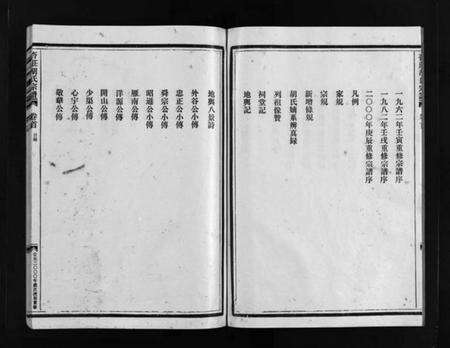 一九六二年壬寅重修宗譜序
一九八二年壬戌重修宗譜序
二〇〇〇年庚辰重修宗譜序
凡例
家規
宗規
新增條規
胡氏嫡系辨真錄
列祖像贊
祠堂記
地輿記
地輿八景詩
外谷公小傳
忠正公小傳
舜宗公小傳
昭通公小傳
雁南公傳
洋源公傳
開山公傳
少渠公傳
心宇公傳
敬華公傳
卷首